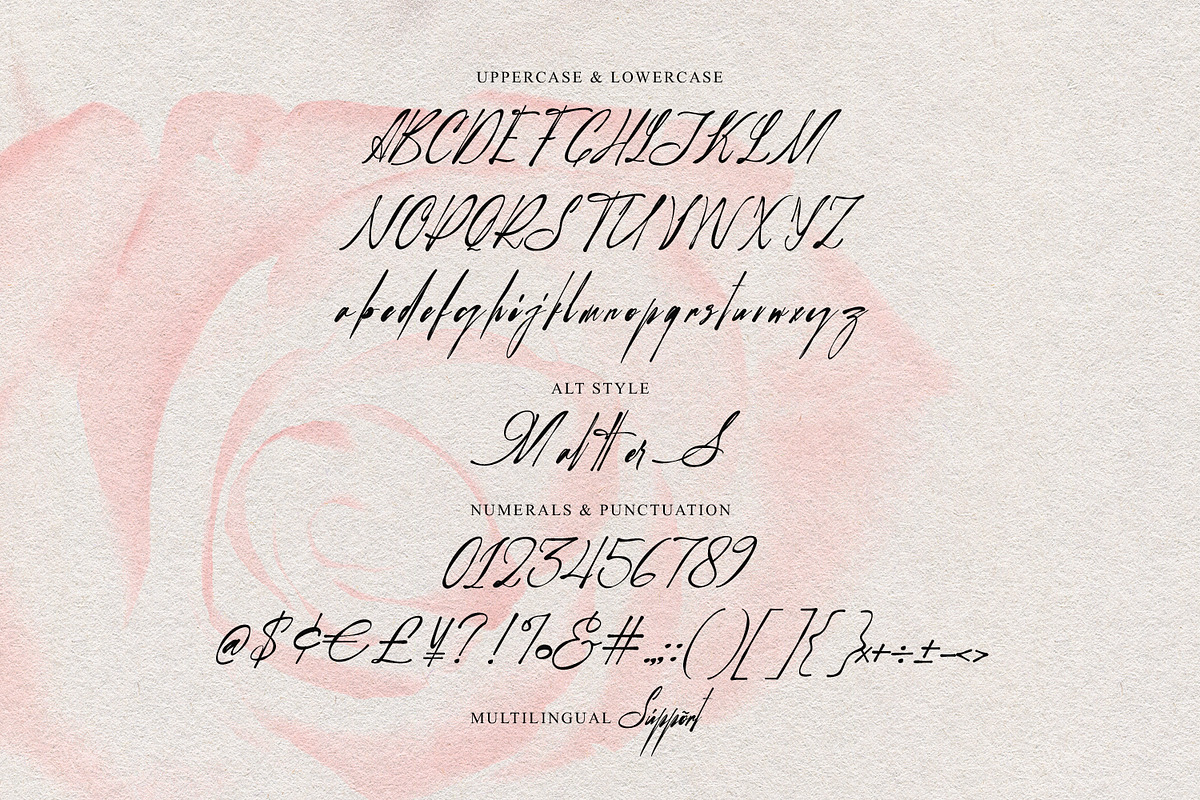 UPPERCASE & LOWERCASE
ABCDEFGHIJKLM
NOPQRSTUVWXYZ
abcdefghijklmnopqrstuvwxyz
ALT STYLE
NUMERALS & PUNCTUATION
0123456789
@$¢€£¥?!%&#.,;:()[]{}×+÷±-<>
MULTILINGUAL Súppõrt